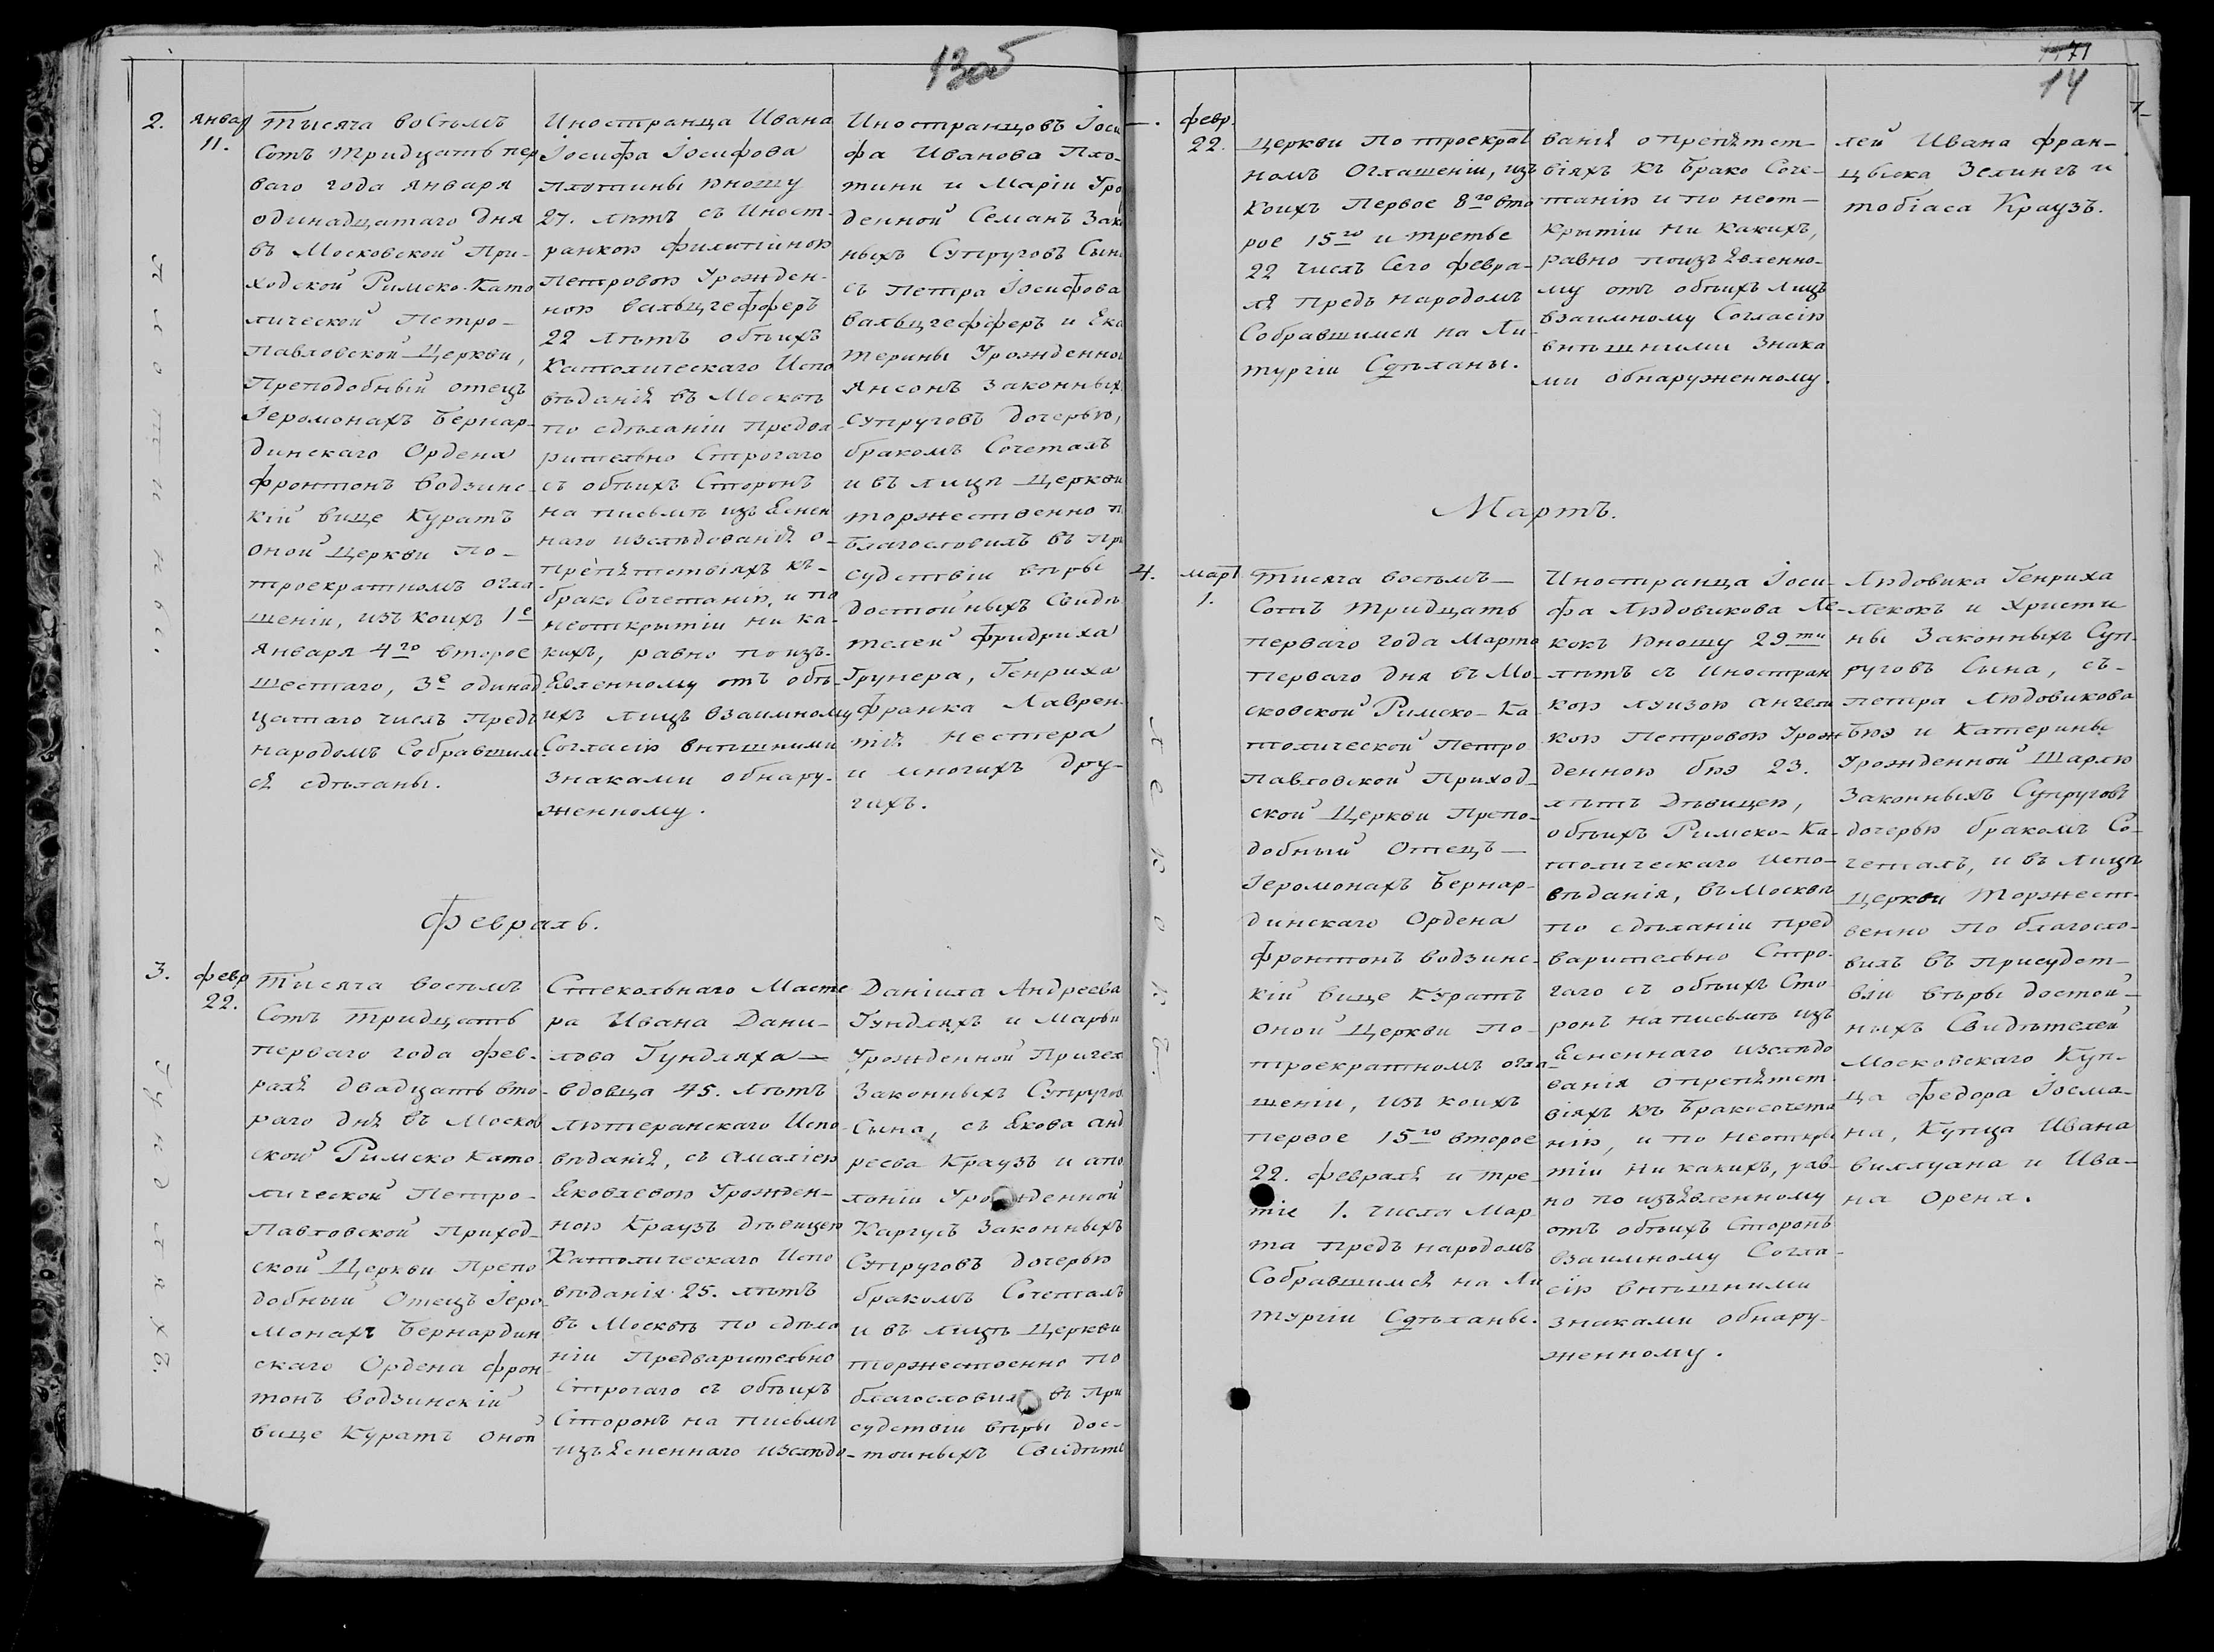 13об
2.
Январ
11.
Плотинъи.
Тысяча восемъ
Сотъ тридцать пер
ваго года января
одинадцатаго дня
въ Московской При-
ходской Римско-Като
лической Петро-
Павловской Церкви,
Преподобный отецъ
Іеромонахъ Бернар-
динскаго Ордена
Фронтонъ Водзинс-
кій вице Куратъ
оной Церкви по-
троекратномъ огла
шеніи, изъ коихъ 1е
января 4го второе
шестаго, 3е одинад
цатаго числъ предъ
народомъ Собравшим
ся сдѣланы.
Иностранца Ивана
Іосифа Іосифова
Плотины юношу
27. лѣтъ съ Иност-
ранкою Филитіиною
Петровою Урожден-
ною Вальцгефферъ
22 лѣтъ обѣихъ
Католическаго Испо
вѣданія въ Москвѣ
по сдѣланіи предва
рительно Строгаго
съ обѣихъ Сторонъ
на письмѣ изъяснен
наго изслѣдованія о-
препятствіяхъ къ-
брако Сочетанію, и по
неоткрытіи ни ка-
кихъ, равно по изъ-
явленному отъ обѣ-
ихъ лицъ взаимному
Согласію внѣшними
знаками обнару-
женному.
Иностранцовъ Іоси
фа Иванова Пло-
тини и Маріи Уро
денной Семанъ Зак
ныхъ Супруговъ Сын
съ Петра Іосифова
Вальцгефферъ и Ека
терины Урожденно
Янсонъ Законных
Супруговъ дочерью,
бракомъ Сочеталъ
и въ лицѣ Церкви
торжественно п
благословилъ въ пр
судствіи вѣры
достойныхъ Свидѣ
телей Фридриха
Грунера, Генриха
Франка Лаврен-
тія Нестера
и многихъ дру-
гихъ.
Февраль.
3.
февр
22.
Гундляхъ.
Тысяча восемъ
Сотъ тридцать
перваго года фев-
раля двадцать вто-
раго дня въ Москов
ской Римско Като-
лической Петро-
Павловской Приход-
ской Церкви Препо
добный Отецъ Іеро
Монахъ Бернардин
скаго Ордена Фрон
тонъ Водзинскій
вице Куратъ оной
Стекольнаго Масте
ра Ивана Дани-
лова Гундляха —
вдовца 45. лѣтъ
лютеранскаго Испо
вѣданія, съ Амаліею
Яковлевою Урожден-
ною Краузъ дѣвицею
Католическаго Испо
вѣданія 25. лѣтъ
въ Москвѣ по сдѣла
ніи Предварительно
Строгаго съ обѣихъ
Сторонъ на письмѣ
изъясненнаго изслѣдо-
Даніила Андреева
Гундляхъ и Марьи
Урожденной Пригел
Законныхъ Супругов
Сына, съ Якова анд
реева Краузъ и апо
лоніи Урожденной
Каргусъ Законныхъ
Супруговъ дочерью
бракомъ Сочеталъ
и въ лицѣ Церкви
торжественно по
благословилъ въ При
судствіи вѣры дос-
тойныхъ Свидѣте
71
14
7
—.
февр.
22.
Церкви По троекрат
номъ Оглашеніи, изъ
Коихъ Первое 8го вто
рое 15го и третье
22 числъ Сего февра-
ля Предъ народомъ
Собравшимся на Ли-
тургіи Сдѣланы.
ванія о препятст-
віяхъ къ брако Соче-
танію и по неот-
крытіи ни какихъ,
равно по изъявленно-
му отъ обѣихъ лицъ
взаимному Согласію
внѣшними знака
ми обнаруженному.
лей Ивана Фран-
цыска Зелингъ и
тобіаса Краузъ.
Мартъ.
4.
март
1.
Лекокъ.
Тысяча восемъ —
Сотъ тридцать
перваго года Марта
перваго дня въ Мо-
сковской Римско-Ка
толической Петро
Павловской Приход-
ской Церкви Препо-
добный Отецъ —
Іеромонахъ Бернар-
динскаго Ордена
Фронтонъ Водзинс-
кій вице Куратъ
оной Церкви по-
троекратномъ огла-
шеніи, изъ коихъ
первое 15го второе
22. февраля и тре-
тіе 1. числа Мар
та предъ народомъ
Собравшимся на Ли
тургіи Сдѣланы.
Иностранца Іоси-
фа Людовикова Ле-
кокъ юношу 29ти
лѣтъ съ Иностран
кою Луизою ангели
кою Петровою Урож
денною бюэ 23.
лѣтъ дѣвицею,
обѣихъ Римско-Ка-
толическаго Испо-
вѣданія, въ Москвѣ
по сдѣланіи пред
варительно Стро-
гаго съ обѣихъ Сто-
ронъ на письмѣ изъ
ясненнаго изслѣдо
ванія о препятст
віяхъ къ бракосочета
нію, и по неоткры
тіи ни какихъ, рав-
но по изъявленному
отъ обѣихъ Сторонъ
взаимному Согла-
сію внѣшними
знаками обнару-
женному.
Людовика Генриха
Лекокъ и Христи
ны Законныхъ Суп-
руговъ Сына, съ-
Петра Людовикова
Бюэ и Катерины
Урожденной Шарлю
Законныхъ Супруговъ
дочерью бракомъ Со-
четалъ, и въ лицѣ
Церкви Торжест-
венно По благосло-
вилъ въ присудст-
віи вѣры достой-
ныхъ Свидѣтелей
Московскаго Куп-
ца Федора Іосма-
на, Купца Ивана
Виллуана и Ива-
на Орена.